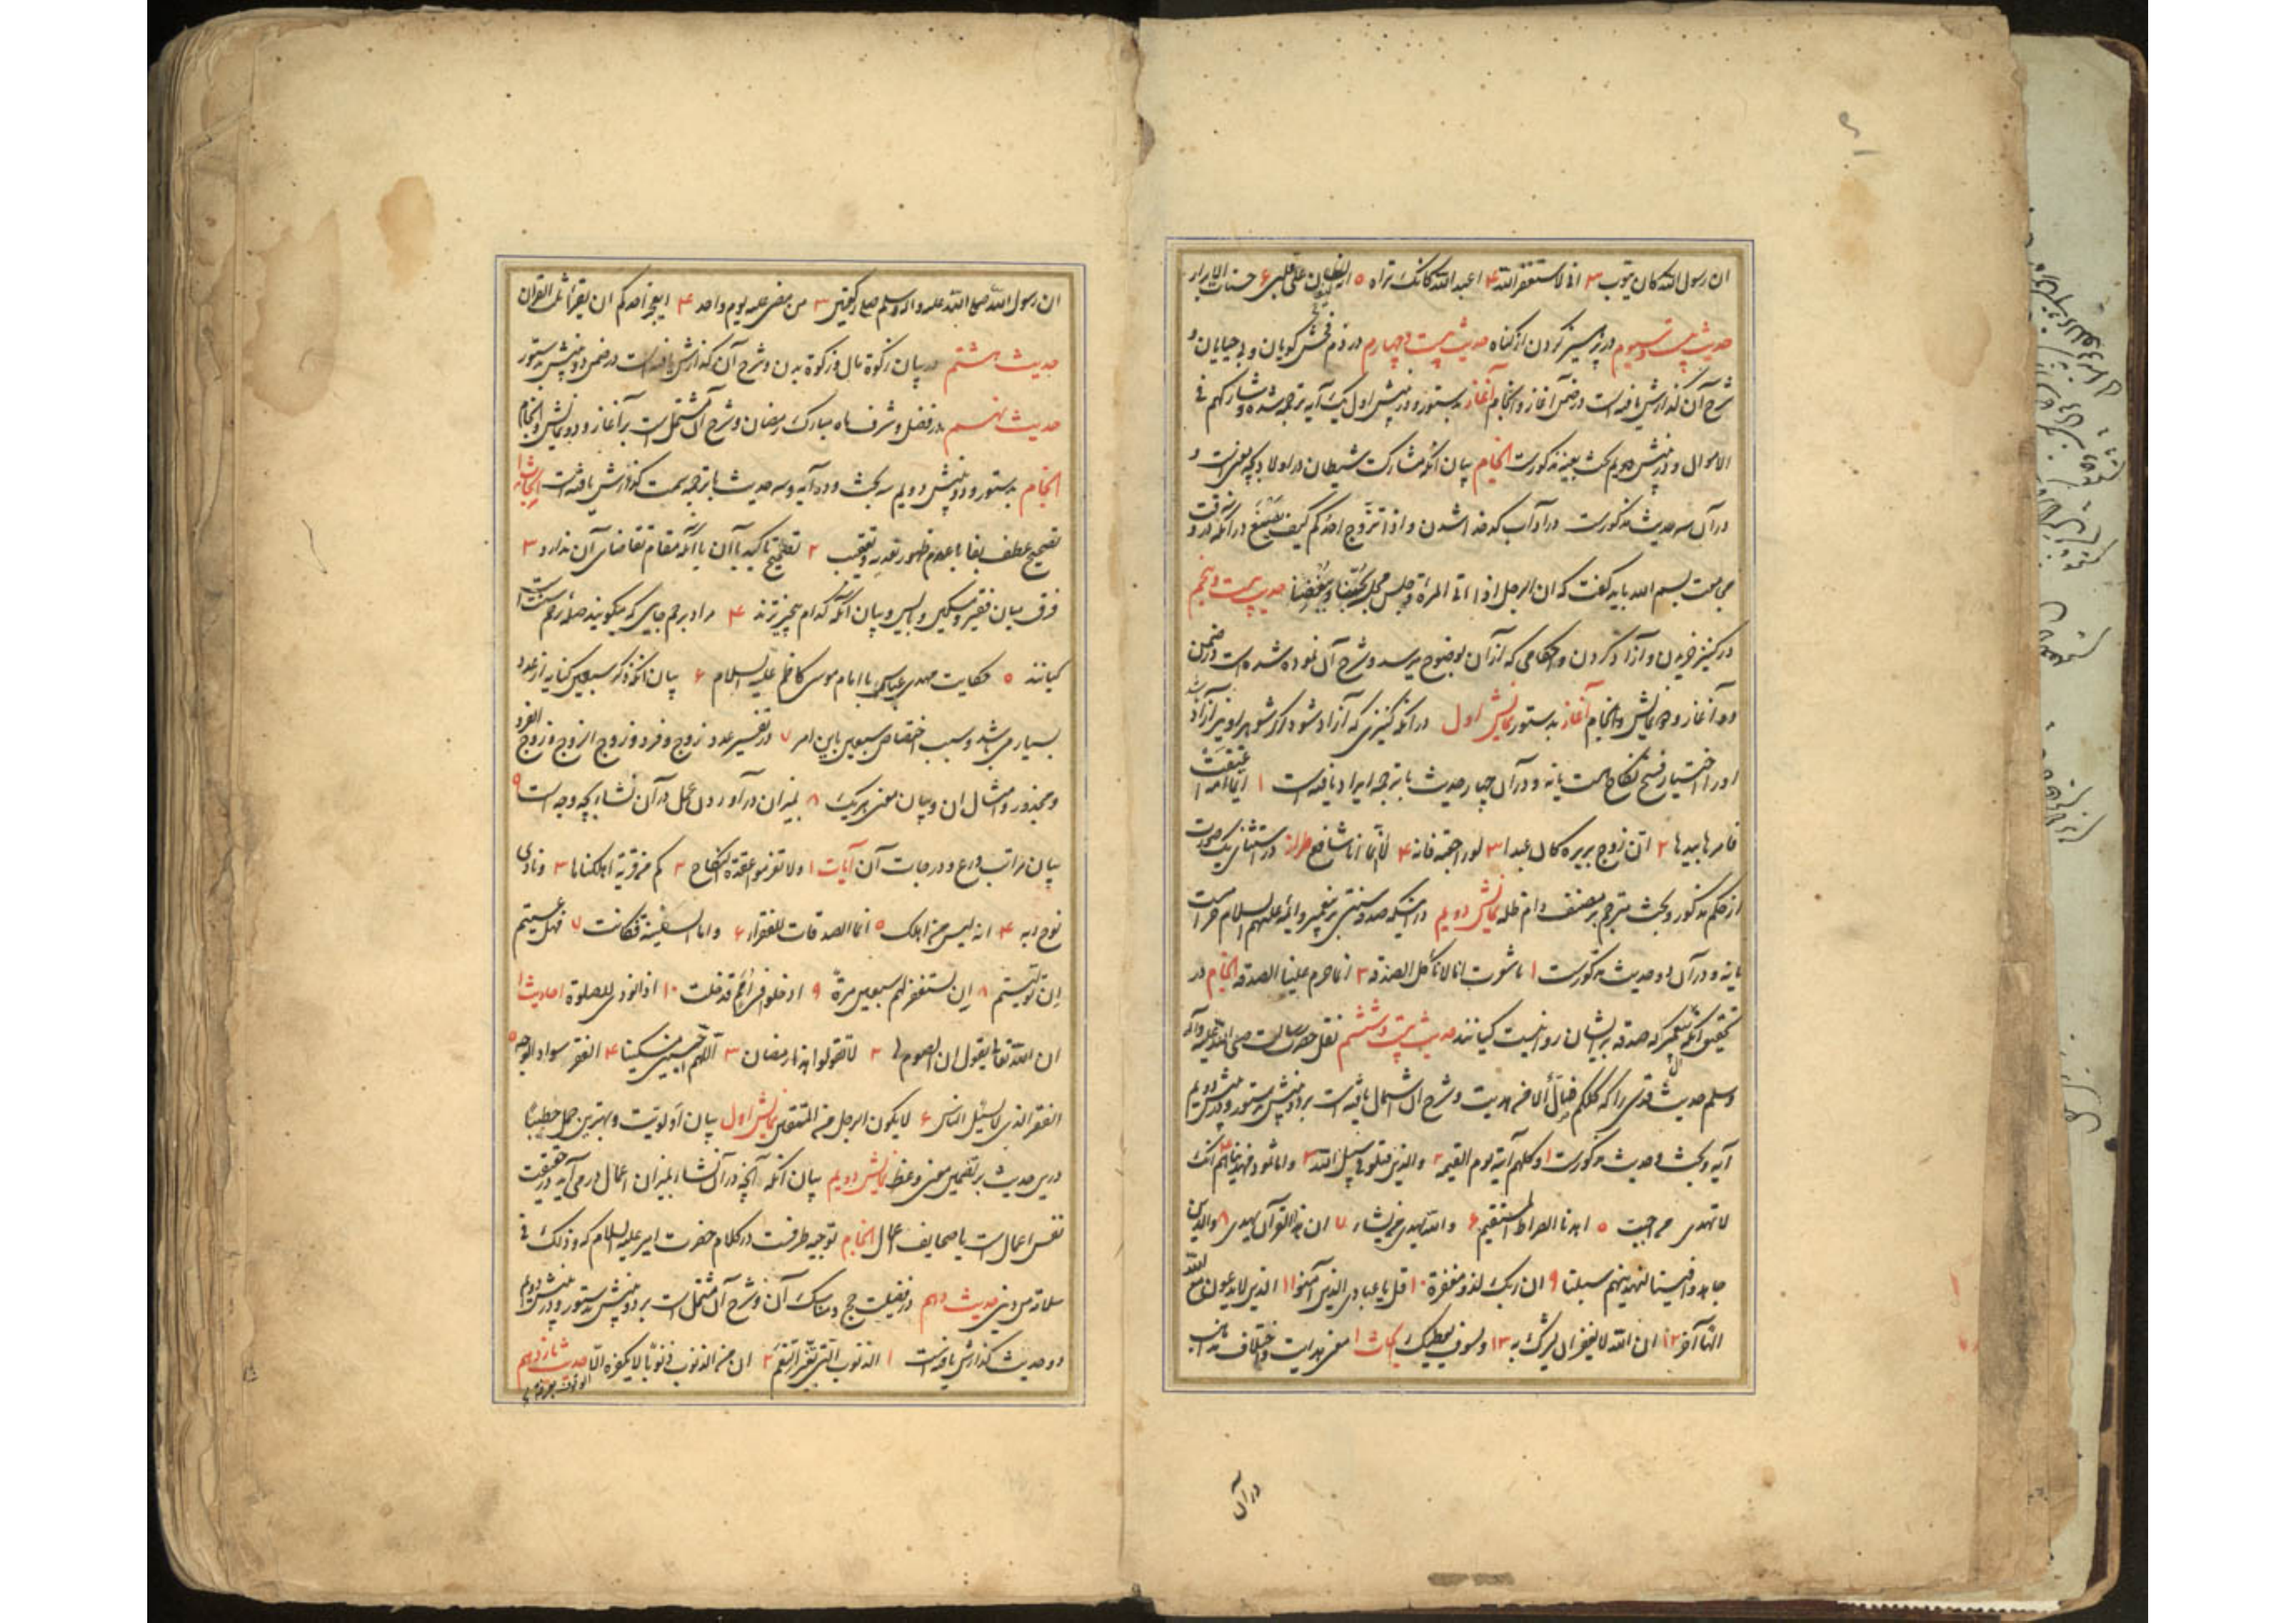 ان رسول الله کان یتوب ۳ انی لاستغفر الله ۴ اعبد الله کانک تراه ۵ انه لیغان علی قلبی ۶ حسنات الابرار
حدیث بیست و سیوم در پرهیز کردن از گناه حدیث بیست و چهارم در ذم فحش گویان و بی حیایان و
شرح آن گذارش یافته است در ضمن آغاز و انجام آغاز بدستور و در نمایش اول یک آیه ترجمه شده و شارکهم فی
الاموال و در نمایش دویم بحث بعینه مذکورست انجام بیان آنکه مشارکت شیطان در اولاد بچه نحوست و
در آن سه حدیث مذکورست در آداب کدخدا شدن و اذا تزوج احدکم کیف یصنع در آنکه در وقت
مجامعت بسم الله باید گفت که ان الرجل اذا اتی المراة و جلس مجلسه حدیث بیست و پنجم
در کنیز خریدن و آزاد کردن و احکامی که از آن بوضوح میرسد و شرح آن نموده شده است در ضمن
آغاز و دو نمایش و انجام آغاز بدستور نمایش اول در آنکه کنیزی که آزاد شود اگر شوهر او نیز آزاد باشد
او را اختیار فسخ نکاح هست یا نه و در آن چهار حدیث با ترجمه ایراد یافته است ۱ ایما امة اعتقت
فامرها بیدها ۲ ان زوج بریره کان عبدا ۳ لو راجعته فانه ۴ لا انما انا شافع طراز در استثنای یک صورت
از حکم مذکور و بحث مترجم بر مصنف دام ظله نمایش دویم در اینکه صدقه سنتی بر پیغمبر و ائمه علیهم السلام حرام است
یا نه و در آن دو حدیث مذکورست ۱ ما شعرت انا لا ناکل الصدقه ۲ انما حرم علینا الصدقه انجام در
تحقیق آنکه صدقه بر ایشان روا نیست کیانند حدیث بیست و ششم نقل حضرت رسالت صلی الله علیه و آله
وسلم حدیث قدسی را که کلکم ضال الا من هدیت و شرح آن اشتمال یافته است بر دو نمایش بدستور و در نمایش دویم
آیه و بحث و حدیث مذکورست ۱ و کلهم آتیه یوم القیمه ۲ والذین قتلوا فی سبیل الله ۳ و اما ثمود فهدیناهم ۴ انک
لا تهدی من احببت ۵ اهدنا الصراط المستقیم ۶ والله یهدی من یشاء ۷ ان هذا القرآن یهدی ۸ والذین
جاهدوا فینا لنهدینهم سبلنا ۹ ان ربک لذو مغفرة ۱۰ قل یا عبادی الذین آمنوا ۱۱ الذین لا یدعون مع الله
الها آخر ۱۲ ان الله لا یغفر ان یشرک به ۱۳ ولسوف یعطیک ربک ابحاث ۱ معنی هدایت و اختلاف مذاهب
در آن
ان رسول الله صلی الله علیه واله وسلم صلی رکعتین ۳ من مضی علیه یوم واحد ۴ ایعجز احدکم ان یقرأ ثلث القران
حدیث هشتم در بیان زکوة مال و زکوة بدن و شرح آن گذارش یافته است در ضمن دو نمایش بدستور
حدیث نهم در فضل و شرف ماه مبارک رمضان و شرح آن مشتمل است بر آغاز و دو نمایش و انجام
انجام بدستور و در نمایش دویم سه بحث و ده آیه و سه حدیث با ترجمه سمت گذارش یافته است ابحاث ۱
تصحیح عطف بفا با عدم ظهور تعقیب ۲ تصحیح تاکید با آن با آنکه مقام تقاضای آن ندارد ۳
فرق میان فقیر و مسکین و بیان آنکه کدام بی چیزترند ۴ مراد برحم جایی که میگویند صله رحم سنت است
کیانند ۵ حکایت مهدی عباسی با امام موسی کاظم علیه السلام ۶ بیان آنکه ذکر سبعین کنایه از عدد
بسیار می باشد و سبب اختصاص سبعین باین امر ۷ در تفسیر عدد زوج و فرد و زوج الزوج و زوج الفرد
و مجذور و امثال ان و بیان معنی هر یک ۸ بمیزان در آوردن عمل در آن نشاء بچه وجه است ۹
بیان مراتب ورع و درجات آن آیات ۱ ولا تعزموا عقدة النکاح ۲ کم من قریة اهلکناها ۳ و نادی
نوح ربه ۴ انه لیس من اهلک ۵ انما الصدقات للفقراء ۶ واما السفینة فکانت ۷ فهل عسیتم
ان تولیتم ۸ ان تستغفر لهم سبعین مرة ۹ ادخلوا فی امم قد خلت ۱۰ اذا نودی للصلوة احادیث ۱
ان الله تعالی یقول ان الصوم لی ۲ لا تقولوا هذا رمضان ۳ اللهم احیینی مسکینا ۴ الفقر سواد الوجه ۵
الفقر الذی لا یسئل الناس ۶ لا یکون الرجل من المتقین نمایش اول بیان اولویت و بهترین حمل خطبنا
درین حدیث بر تضمین معنی وعظ نمایش دویم بیان آنکه آنچه در آن نشاء بمیزان اعمال در می آید در حقیقت
نفس اعمال است یا صحایف اعمال انجام توجیه ظرفیت در کلام حضرت امیر علیه السلام که و ذلک فی
سلامة من دینی حدیث دهم در فضیلت حج و مناسک آن و شرح آن مشتمل است بر دو نمایش بدستور و در نمایش دویم
دو حدیث گذارش یافته است ۱ الذنوب التی تغیر النعم ۲ ان من الذنوب ذنوبا لا یکفره الا الوقوف بعرفة حدیث یازدهم